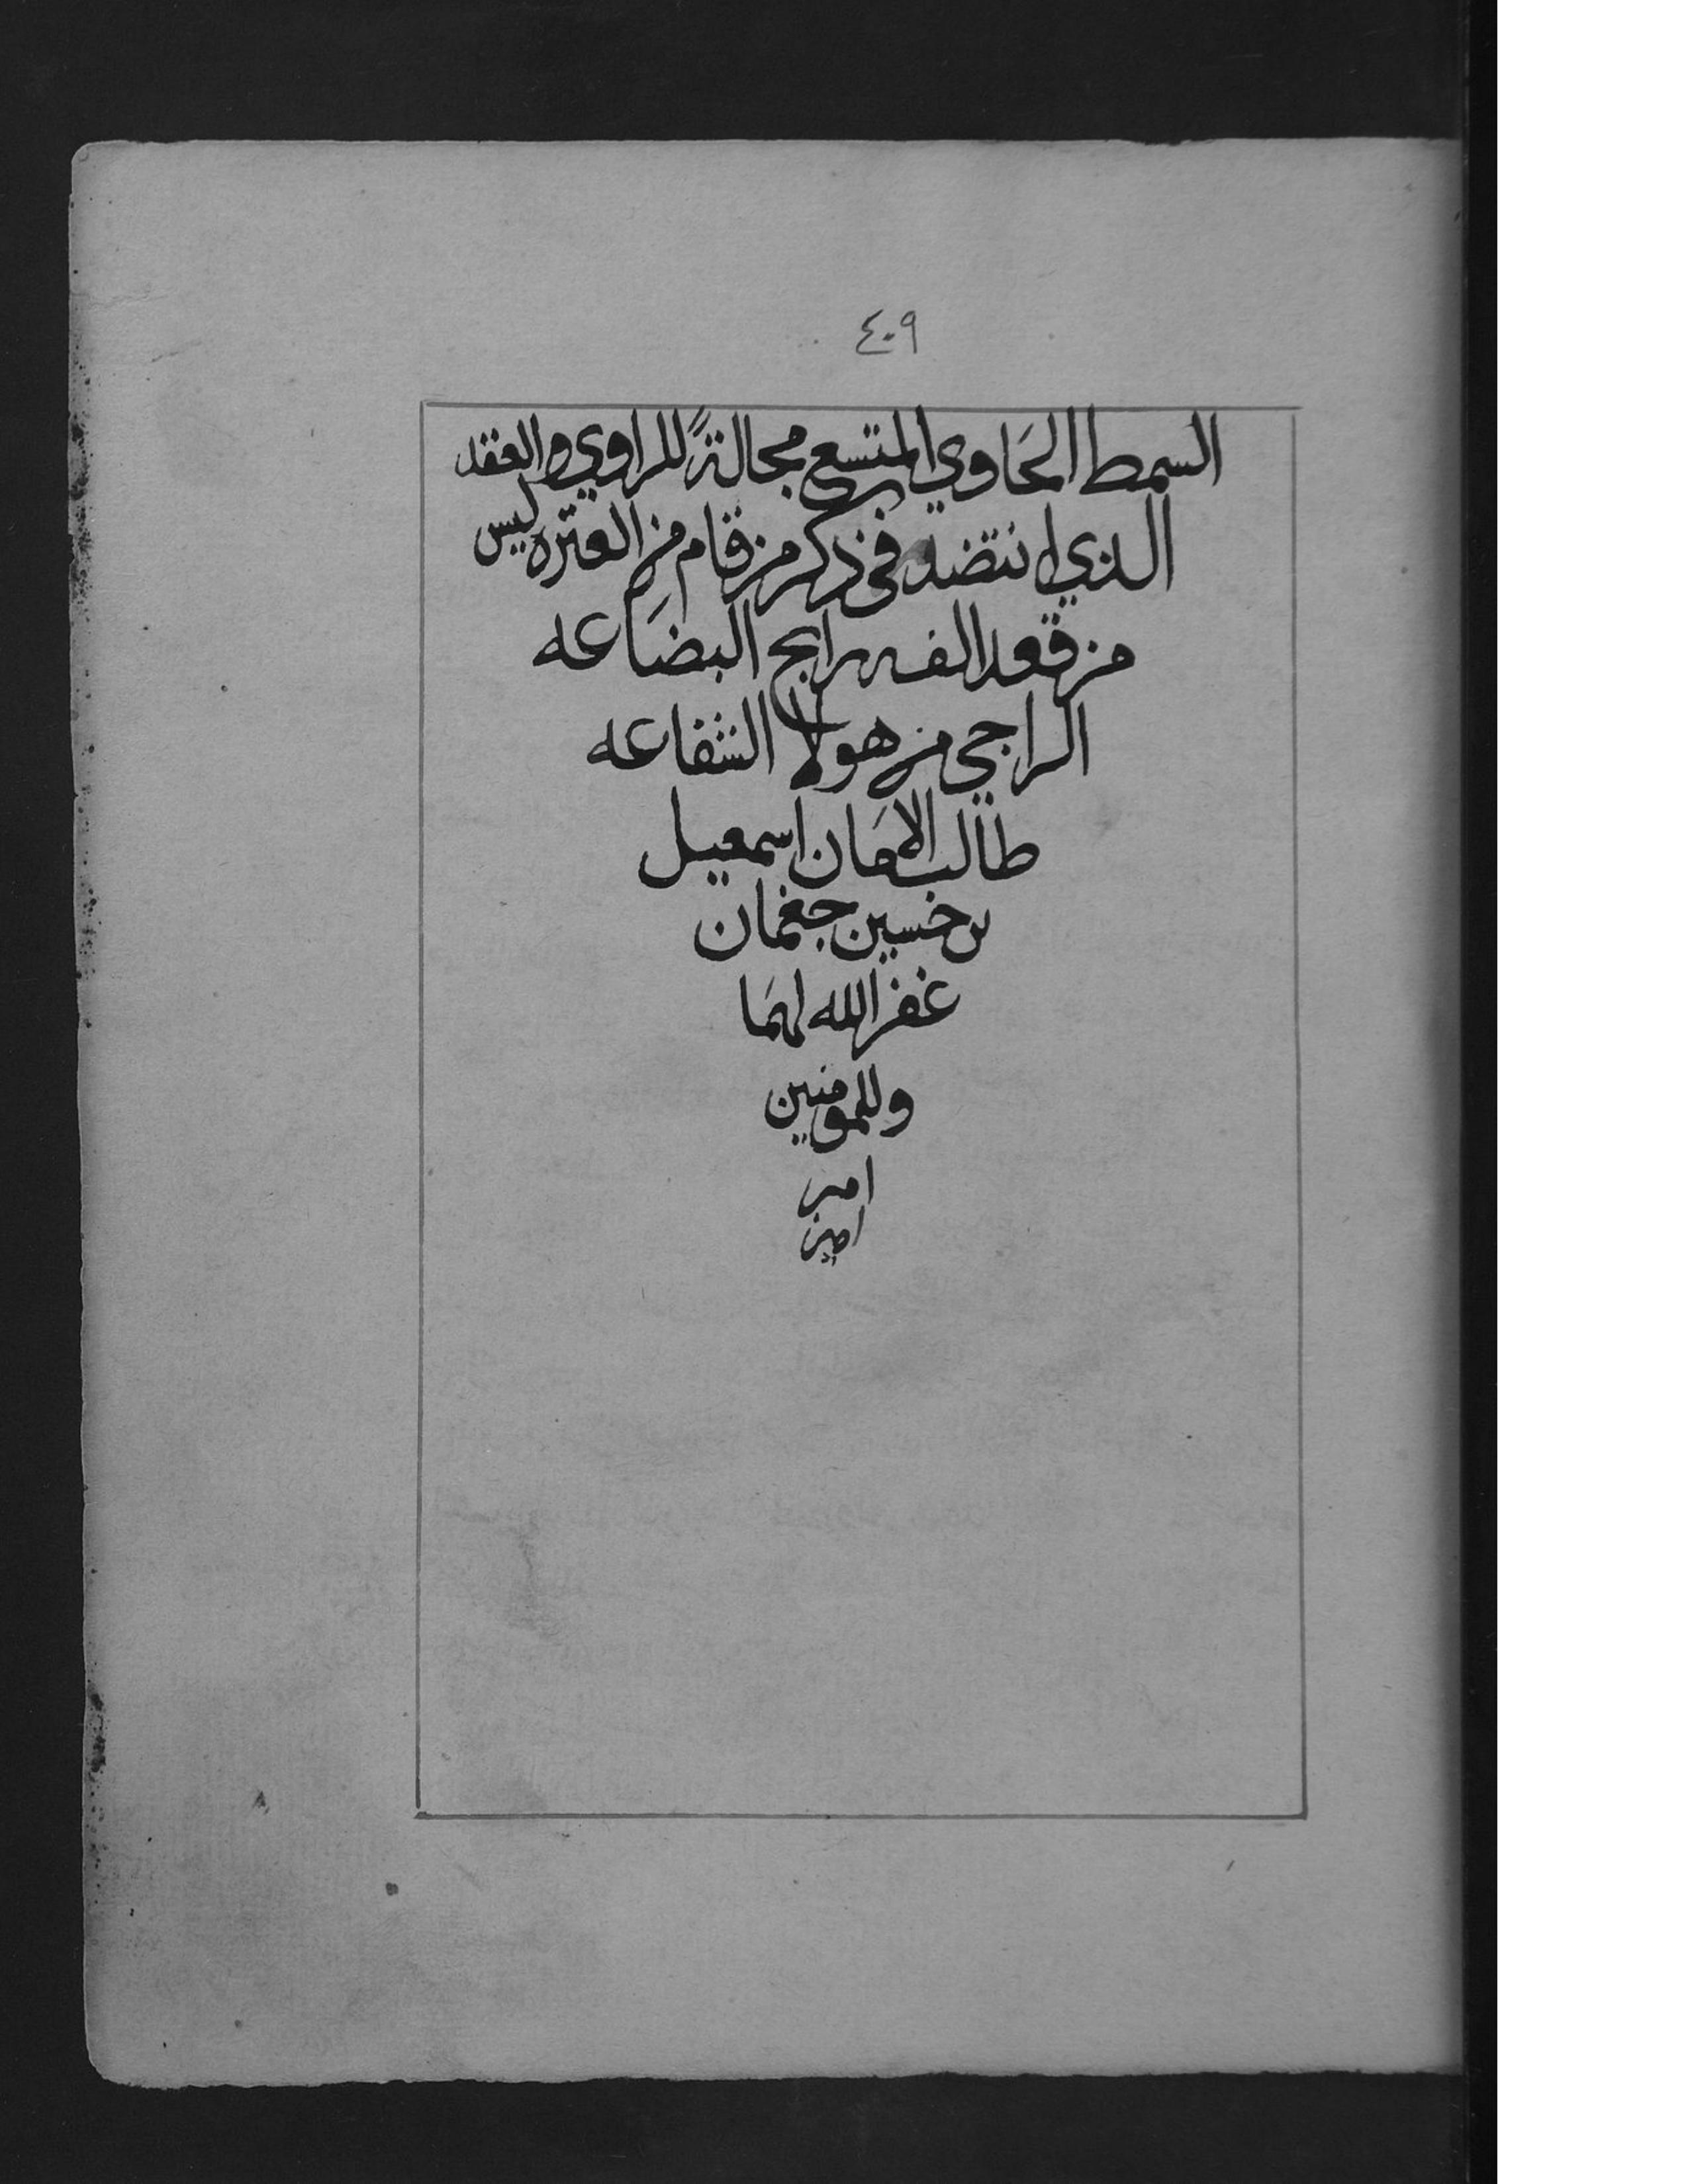 ٤٠٩
السمط الحَاوي المتسع مجالةً للراوي والعقد
الذي انتضد في ذكر من قام من العتره ليس
من قعد الفه رابح البضَاعه
الراجي من هولا الشفاعه
طالب الامَان اسمعيل
بن حسين جغمان
غفر الله لهمَا
وللمومنين
امين
امين